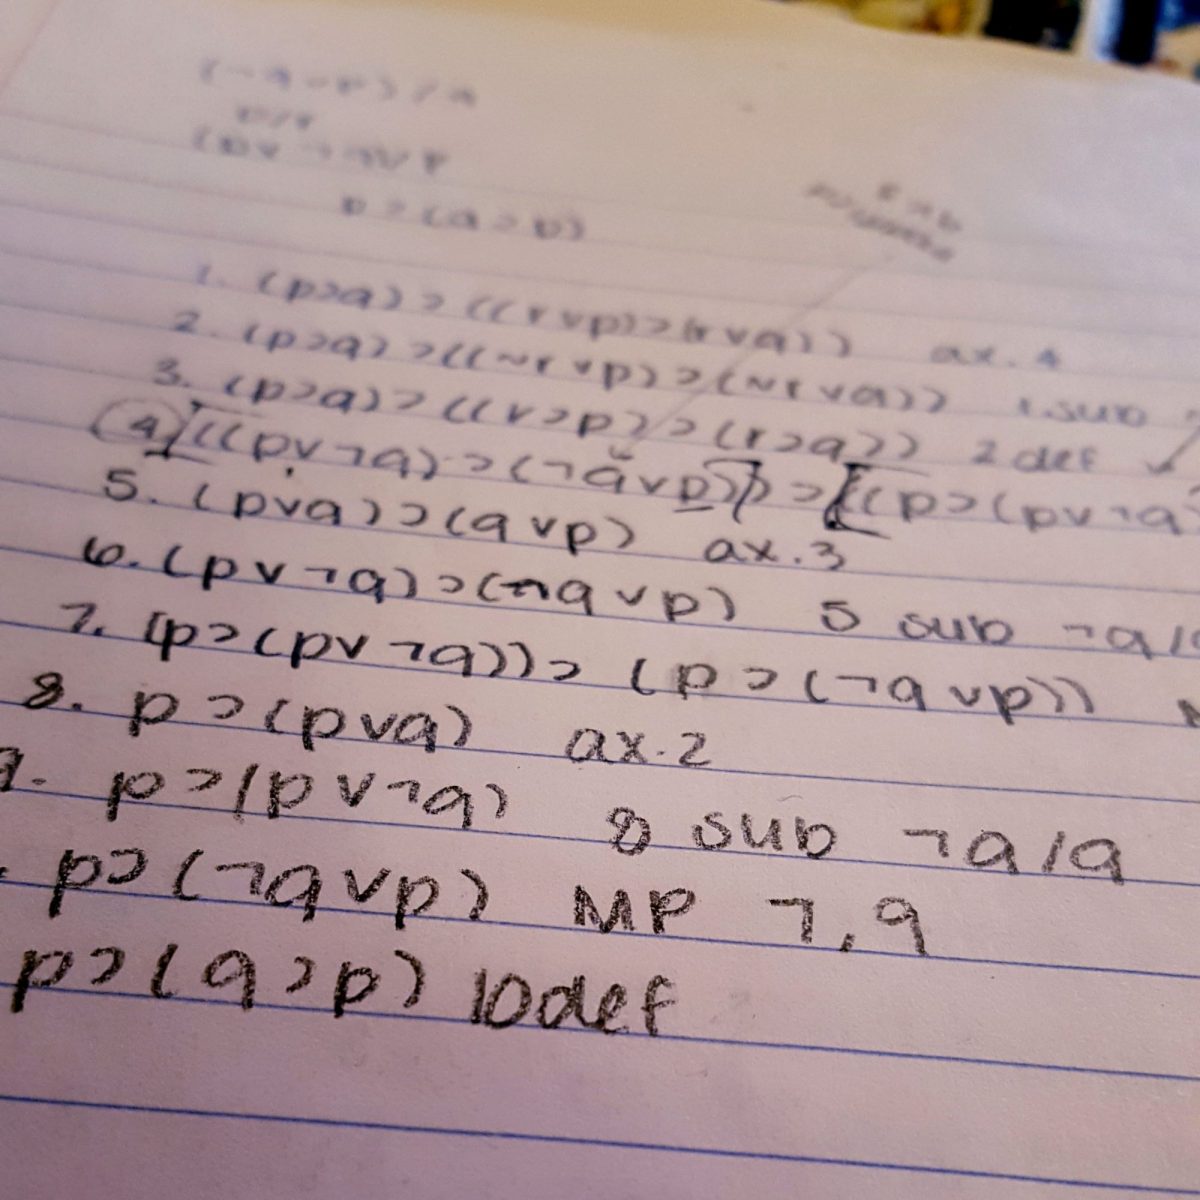 p ⊃ (q ⊃ p)
1. (p⊃q) ⊃ ((r ∨ p) ⊃ (r ∨ q)) ax. 4
2. (p⊃q) ⊃ ((~r ∨ p) ⊃ (~r ∨ q)) 1. sub
3. (p⊃q) ⊃ ((r⊃p) ⊃ (r⊃q)) 2 def
4. [((p∨¬q) ⊃ (¬q∨p))] ⊃ [((p⊃(p∨¬q
5. (p∨q) ⊃ (q∨p) ax.3
6. (p∨¬q) ⊃ (¬q∨p) 5 sub ¬q/
7. (p⊃(p∨¬q)) ⊃ (p ⊃ (¬q∨p))
8. p ⊃ (p∨q) ax.2
9. p ⊃ (p∨¬q) 8 sub ¬q/q
. p⊃(¬q∨p) MP 7,9
p⊃(q⊃p) 10 def